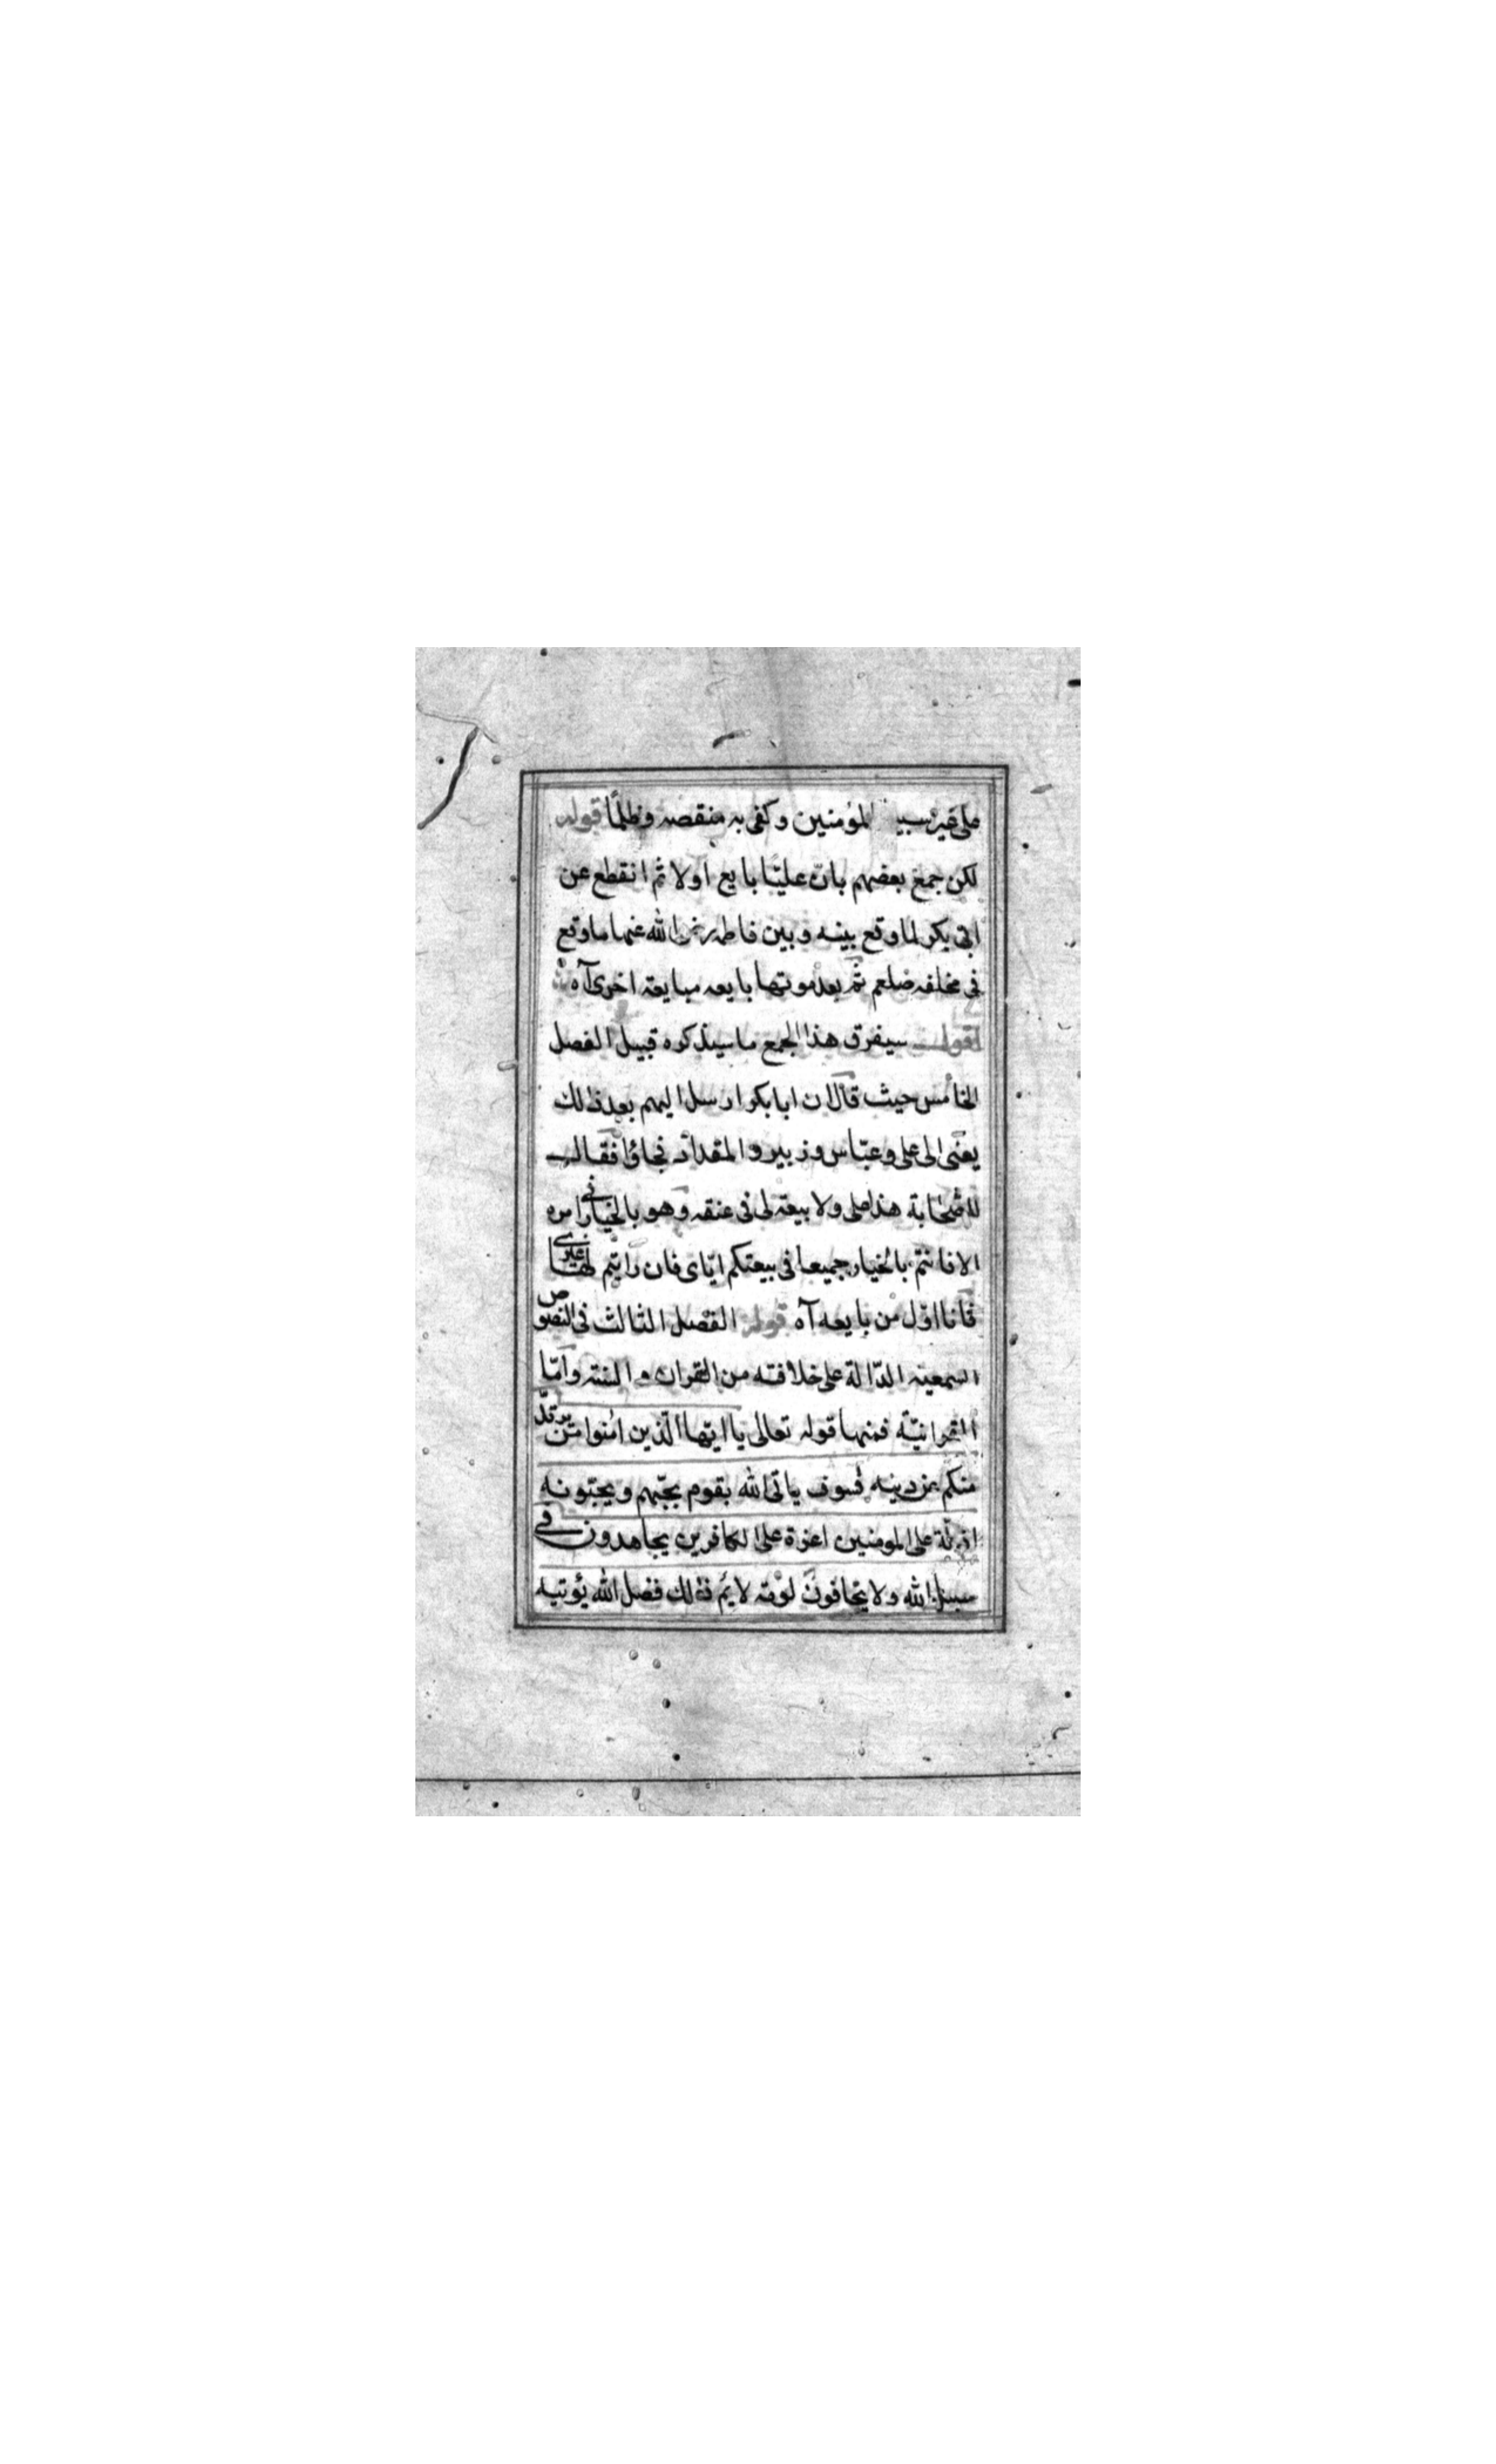 على غير سبيل المؤمنين وكفى به منقصه وظلمًا قوله
لكن جمع بعضهم بان عليّا بايع اولا ثم انقطع عن
ابى بكر لما وقع بينه وبين فاطمه رضى الله عنها ما وقع
فى مخلفه صلعم ثم بعد موتها بايعه مبايعة اخرى آه
اقول سيفرق هذا الجمع ما سيذكره قبيل الفصل
الخامس حيث قال ان ابا بكر ارسل اليهم بعد ذلك
يعنى الى على وعبّاس وزبير والمقداد فجاؤا فقال
للصّحابة هذا على ولا بيعة لى فى عنقه وهو بالخيار فى امره
الا فانتم بالخيار جميعا فى بيعتكم ايّاى فان رايتم لها غيرى
فانا اوّل من بايعه آه قوله الفصل الثالث فى النصوص
السمعيه الدّالة على خلافته من القران والسنة وامّا
القرانيّه فمنها قوله تعالى يا ايّها الّذين امنوا من يرتدّ
منكم عن دينه فسوف ياتى الله بقوم يحبّهم ويحبّونه
اذلّة على المومنين اعزة على الكافرين يجاهدون فى
سبيل الله ولا يخافون لومة لائم ذلك فضل الله يؤتيه